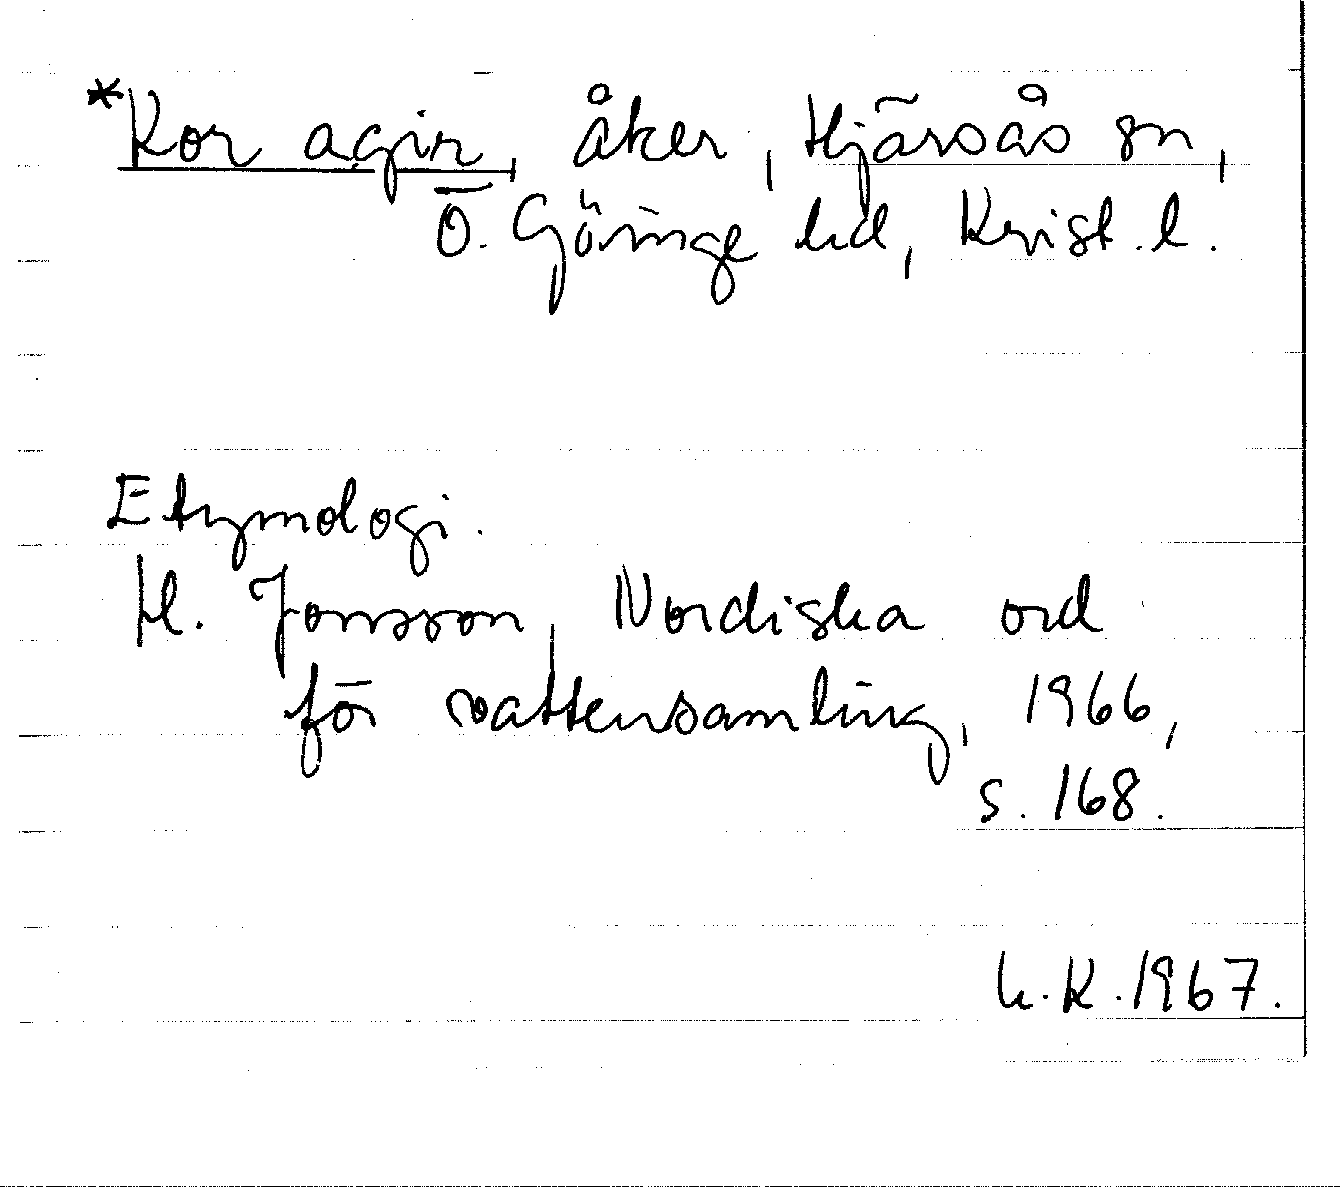 *Kor agir, åker, Hjärsås sn,
Ö. Göinge hd, Krist. l.
Etymologi.
H. Jonsson, Nordiska ord
för vattensamling, 1966,
s. 168.
h.K. 1967.